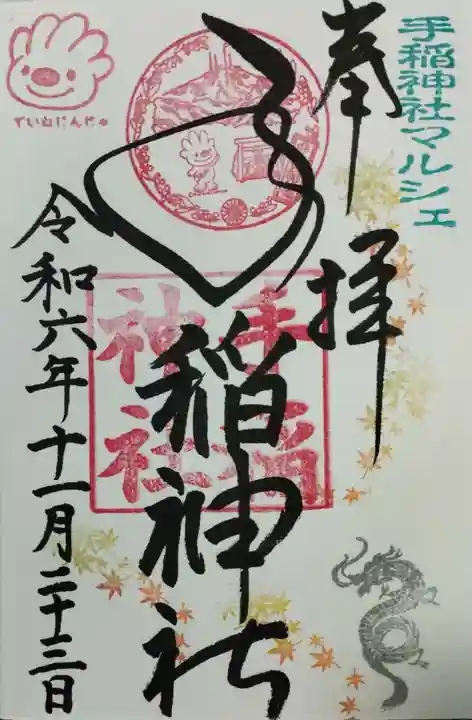 手稲神社マルシェ
奉拝
手稲神社
手稲
神社
令和六年十一月二十三日